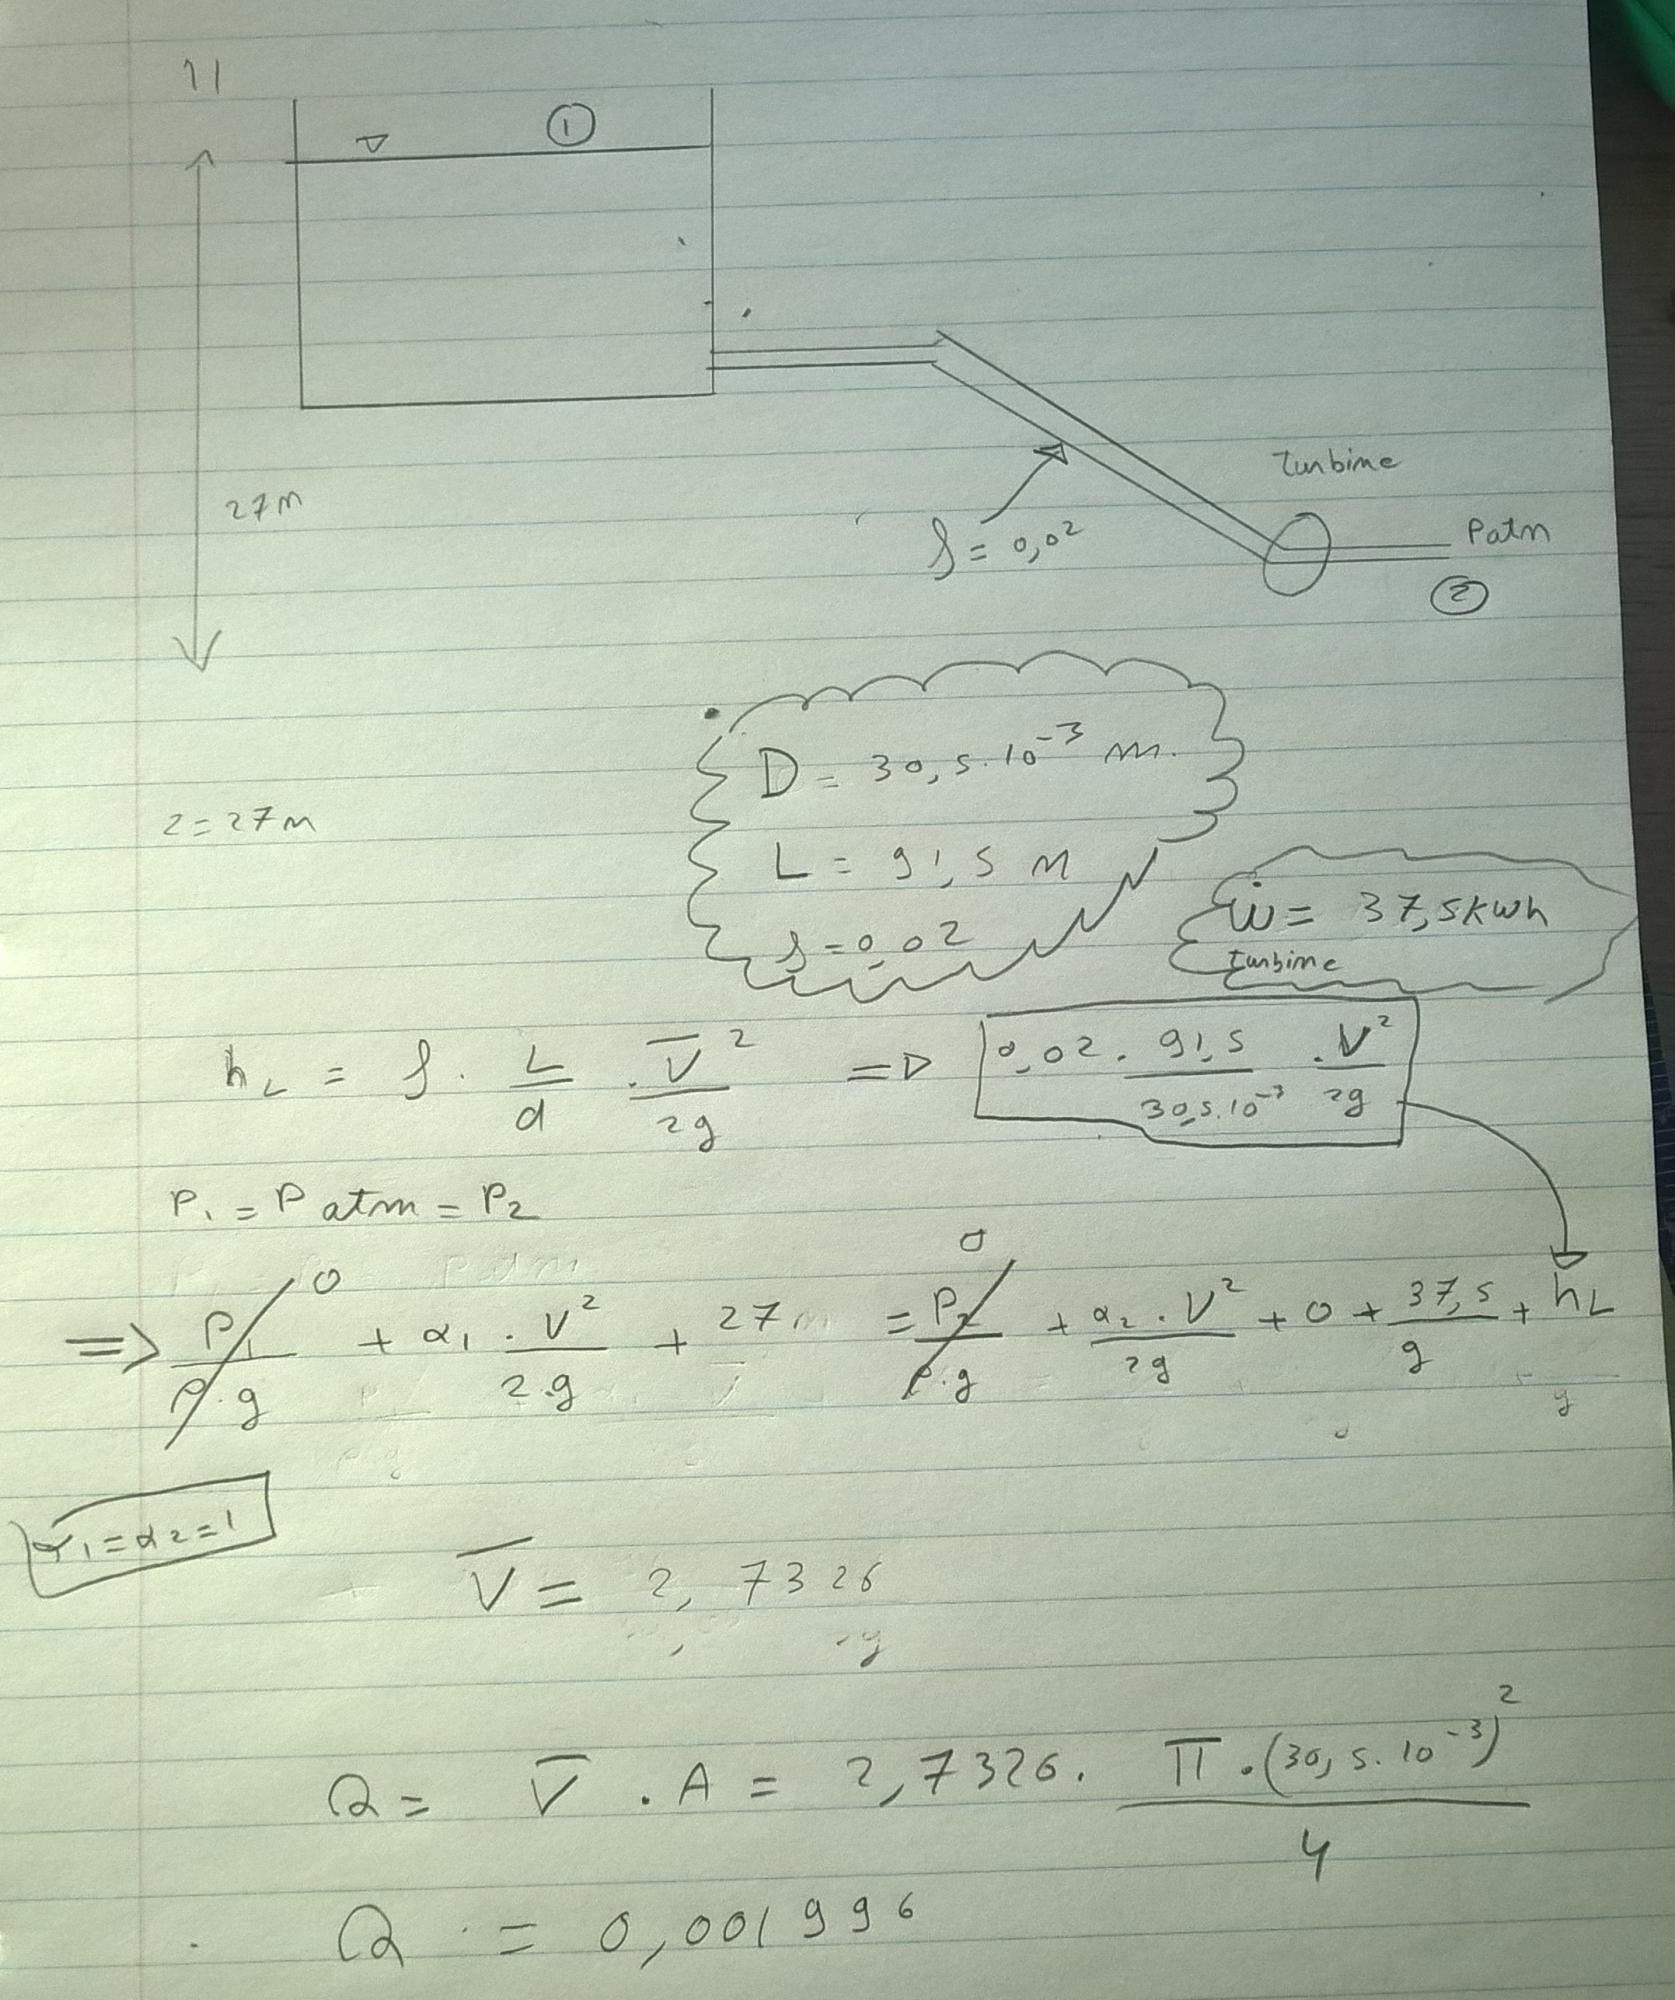 11
①
27m
Turbine
f = 0,02
Patm
②
D = 30,5.10⁻³ m.
z = 27m
L = 91,5 m
f = 0,02
ẇ = 37,5kwh
turbine
h_L = f . L/d . V̅²/2g => 0,02 . 91,5/30,5.10⁻³ . V²/2g
P₁ = P atm = P₂
=> P₁/ρ.g 0 + α₁ . V²/2.g + 27m = P₂/ρ.g 0 + α₂ . V²/2g + 0 + 37,5/g + h_L
α₁ = α₂ = 1
V̅ = 2,7326
Q = V̅ . A = 2,7326 . π . (30,5.10⁻³)²/4
Q = 0,001996